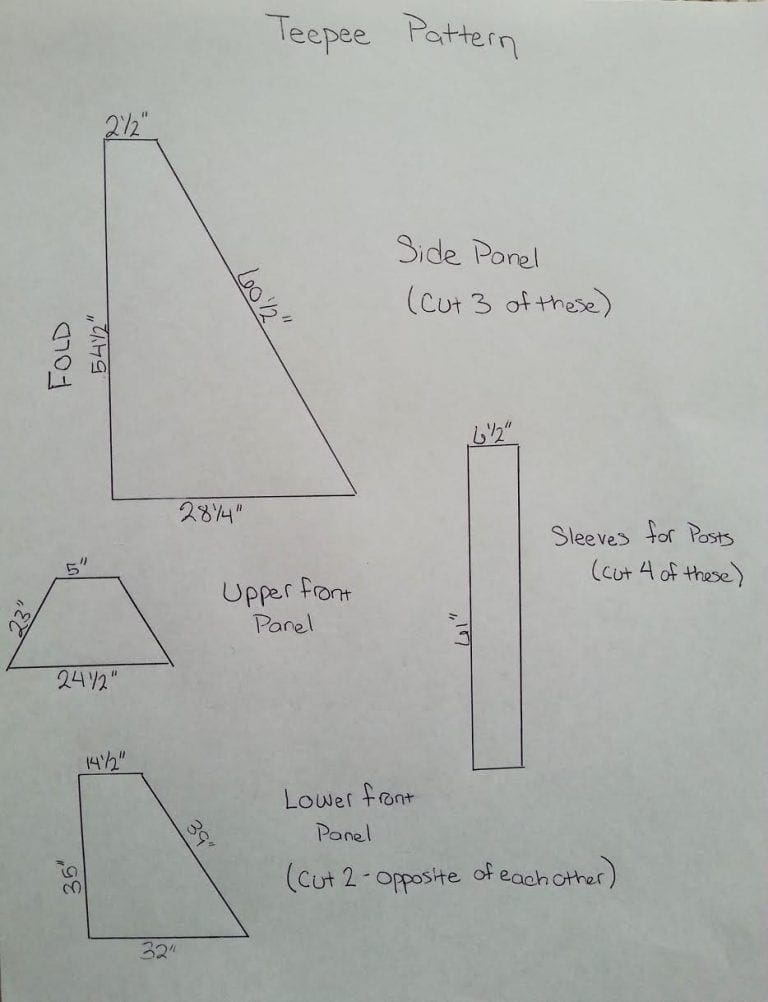 Teepee Pattern
2 1/2"
60 1/2"
FOLD
54 1/2"
28 1/4"
Side Panel
(Cut 3 of these)
6 1/2"
61"
Sleeves for Posts
(cut 4 of these)
5"
23"
24 1/2"
Upper front
Panel
14 1/2"
39"
36"
32"
Lower front
Panel
(Cut 2 - opposite of each other)